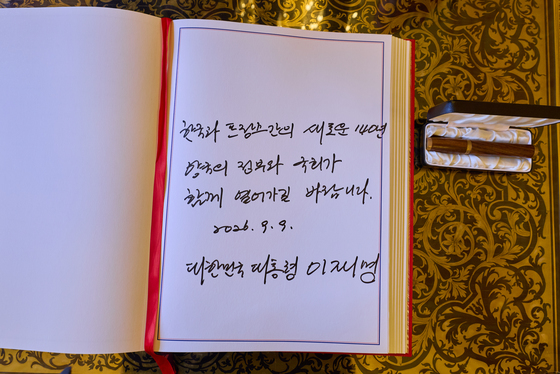 한국과 프랑스간의 새로운 140년
양국의 정부와 국회가
함께 열어가길 바랍니다.
2026. 9. 9.
대한민국 대통령 이재명